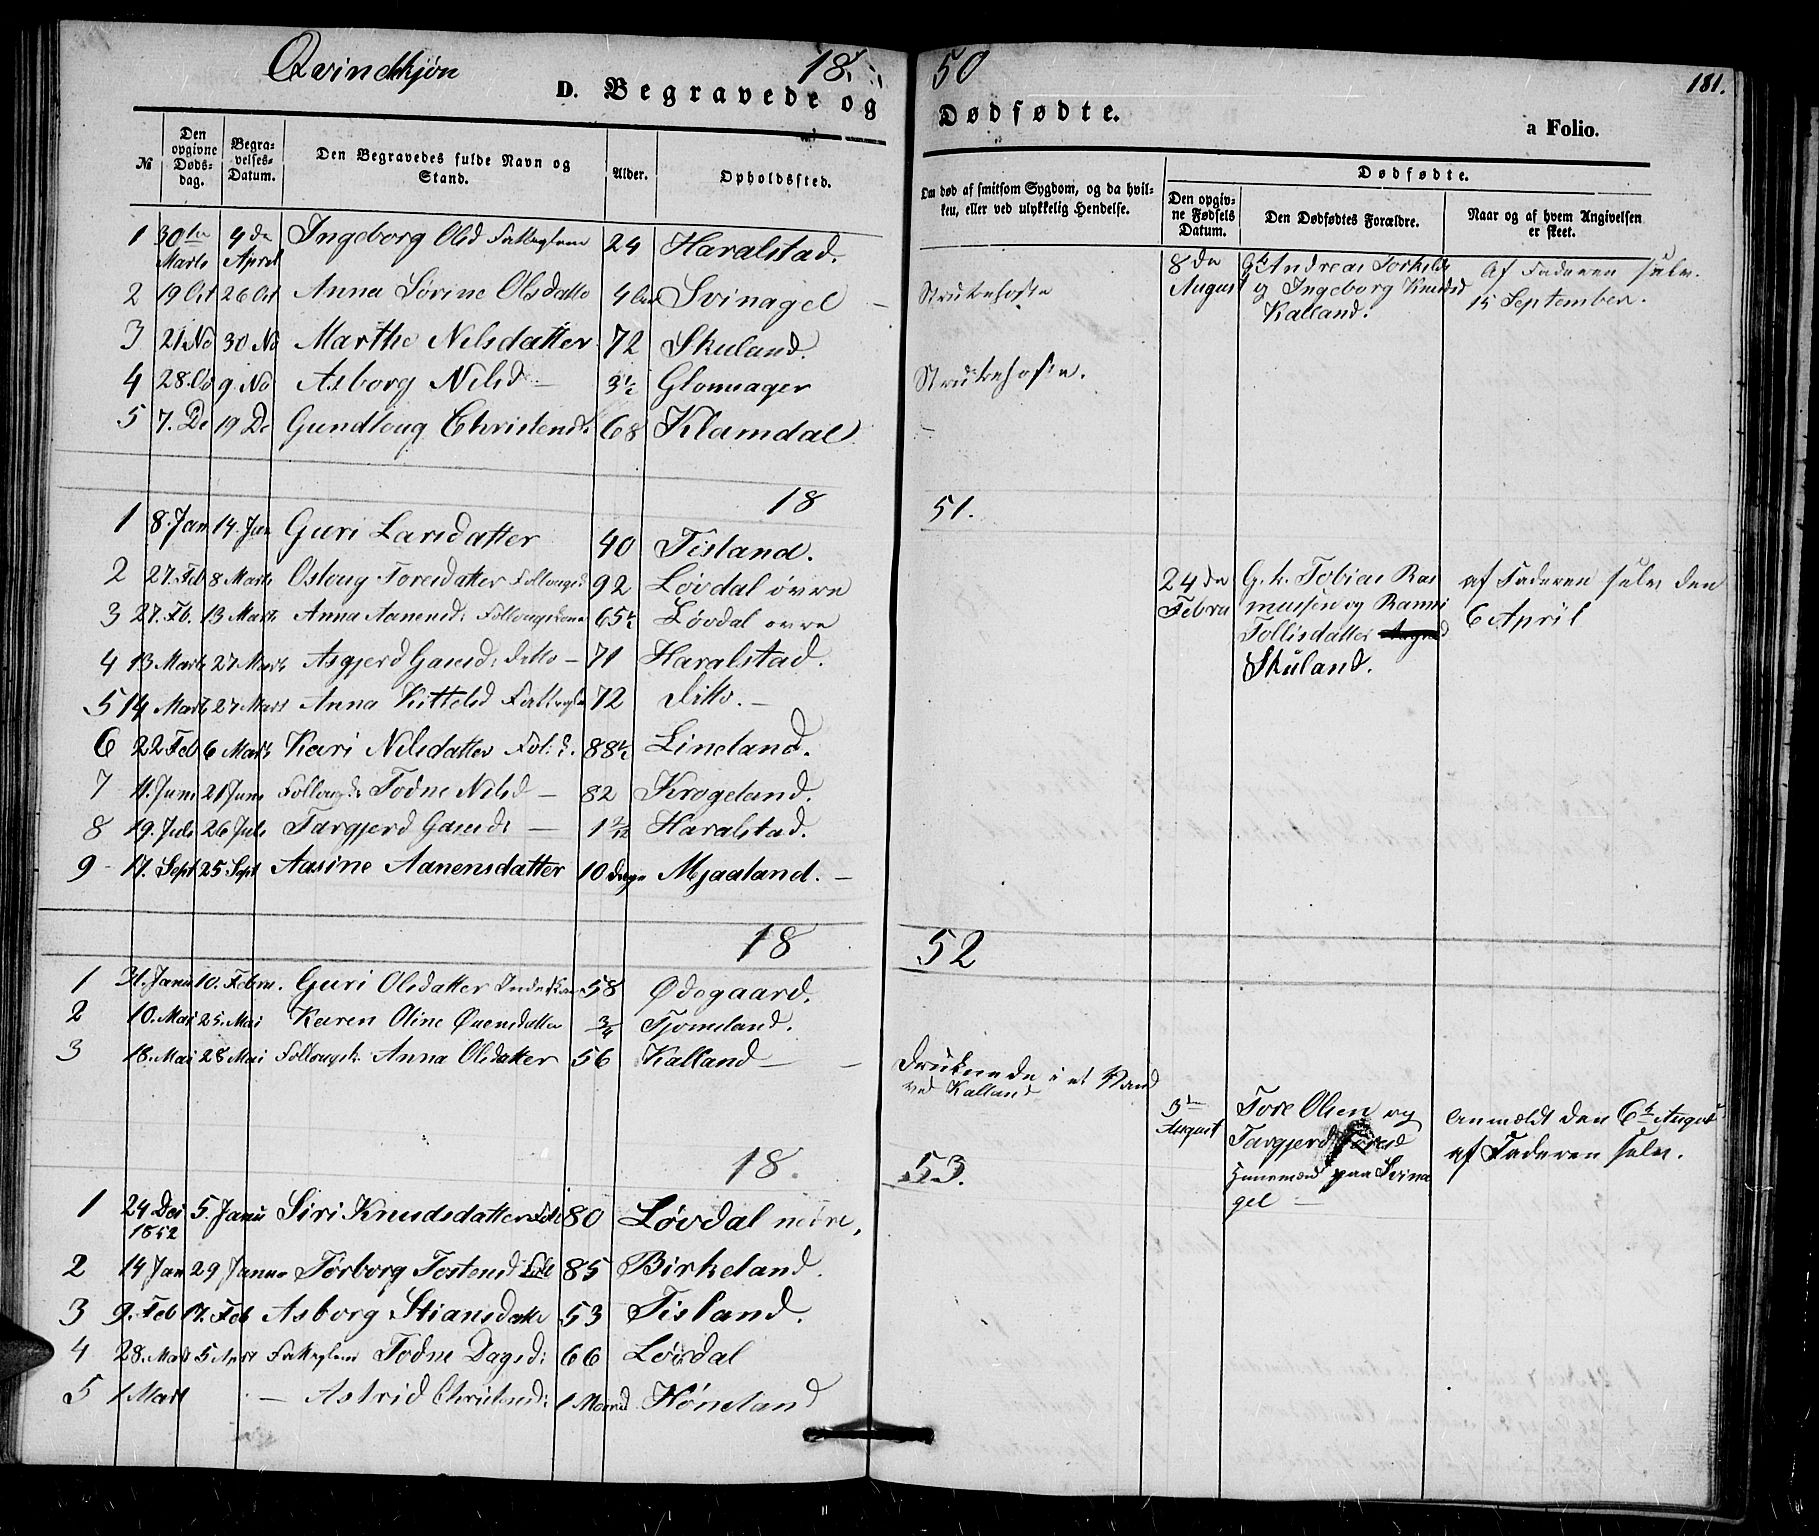 Qvindekjøn
1850
181.
D. Begravede og Dødfødte.
a Folio.
№ | Den opgivne Døds-dag. | Begra-velses-Datum. | Den Begravedes fulde Navn og Stand. | Alder. | Opholdssted. | Om død af smitsom Sygdom, og da hvil-ken, eller ved ulykkelig Hendelse. | Dødfødte. | Den opgiv-ne Fødsels Datum. | Den Dødfødtes Forældre. | Naar og af hvem Angivelsen er skeet.
1 30te Marts 4de April Ingeborg Olsd 24 Haralstad.
8de August Andreas Torkilds og Ingeborg Knudsd Kalland. Af Faderen selv. 15 September.
2 19 Oct 26 Oct Anna Sørine Olsdatte Svinagel — Strubehoste
3 21 No 30 No Marthe Nilsdatter 72 Skuland.
4 28. Oc 9. No Asborg Nilsd — 3½ Glomsager Strubehoste.
5 7. De 19 De Gundloug Christensd. 68 Klamdal
1851.
1 8. Jan 14. Jan Guri Larsdatter 40 Tisland.
2 27. Feb 8 Marts Osloug Toresdatter 92 Løvdal øvre
24de Februa G. k. Tobias Rasmussen og Ranni Tollisdatter Skuland. af Faderen selv den 6 April
3 27. Fb. 13 Marts Anna Aanensd: 65½ Løvdal øvre
4 13 Marts 27 Marts Asgjerd Gamsd: Ditto — 71 Haralstad.
5 14 Marts 27 Marts Anna Kittelsd 72 Ditto. —
6 22 Feb 6 Marts Kari Nilsdatter 88½ Lineland.
7 11. Juni 21 Juni Todne Nilsd — 82 Krogeland.
8 19. Juli 26 Juli Targjerd Gamsd: — Haralstad.
9 17. Sept 25 Sept Aasine Aanensdatter 10 Dage Mjaaland. —
1852
1 31. Janu 10. Februa. Guri Olsdatter 58 Ødegaard.
2 10. Mai 25. Mai Karen Oline 3/4 Tjomsland.
3 18. Mai 28 Mai Anna Olsdatter 56 Kalland — Druknede i et Vand ved Kalland
3de August Tore Olsen og Targjerd paa Svinagel — Anmeldt den 6te August af Faderen selv.
1853.
1 24 Dec 1852 5. Janu Siri Knudsdatter 80 Løvdal nedre,
2 14 Jan 29 Janua Torborg Tostensd 85 Birkeland.
3 9. Feb 17. Feb Asborg Stiansdatte 53 Tisland.
4 28. Mart 5 Apr Todne Dagsd: 66 Løvdal
5 1 Mart — Astrid Christensd: 1 Maaned Høneland